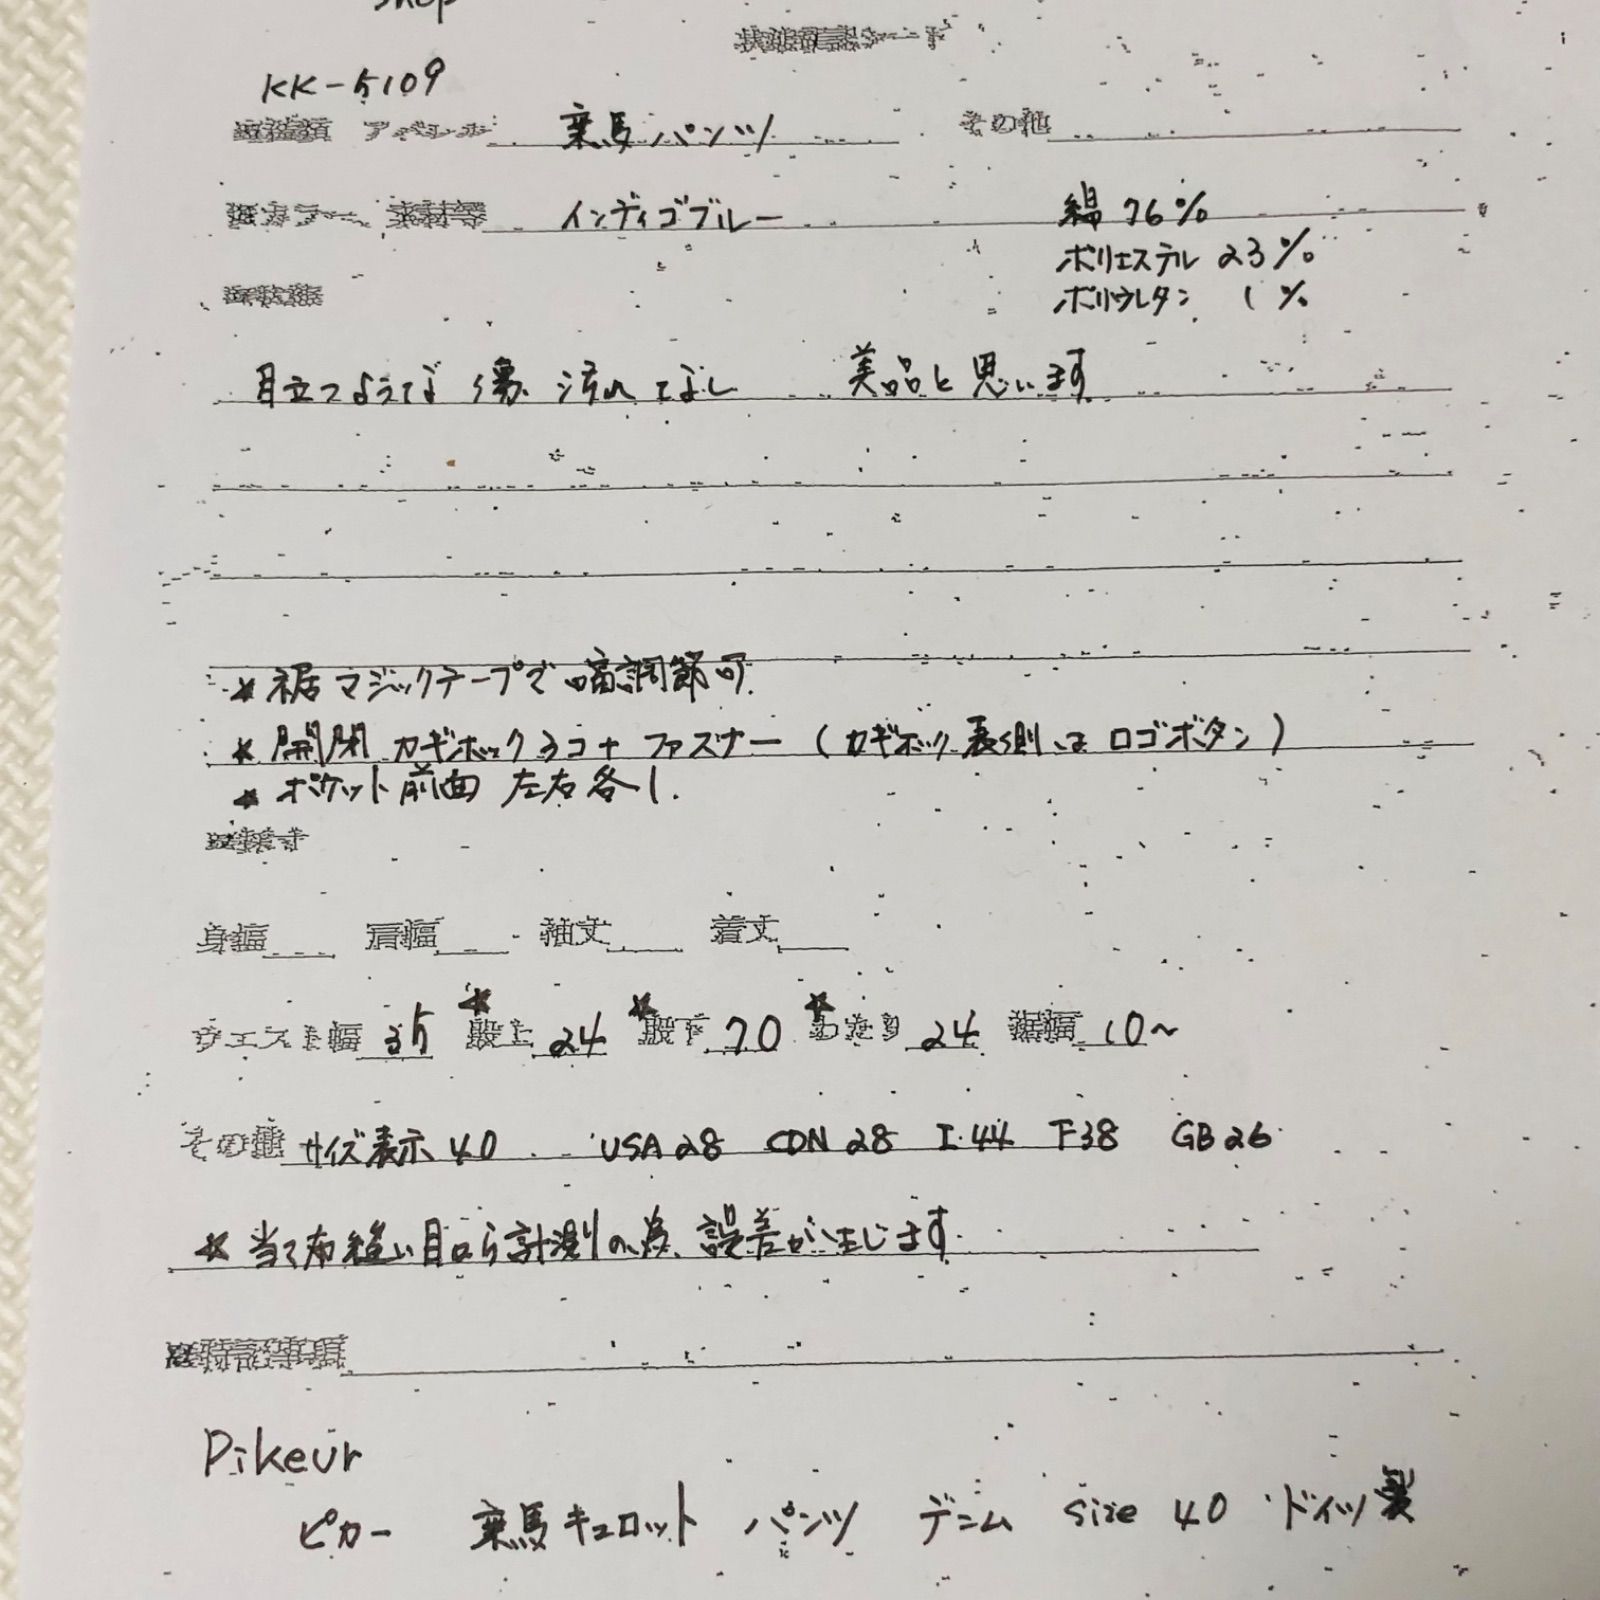 shop
状態確認シート
KK-5109
アパレル 乗馬パンツ その他
カラー、素材等 インディゴブルー 綿 76%
ポリエステル 23%
ポリウレタン 1%
■状態
目立つような傷、汚れ なし 美品と思います
★ 裾マジックテープで幅調節可.
★ 開閉 カギホック3コ+ファスナー (カギホック表側はロゴボタン)
★ ポケット前面 左右各1.
■採寸
身幅 肩幅 袖丈 着丈
ウエスト幅 35 ★股上 24 ★股下 70 ★わたり 24 裾幅 10〜
その他 サイズ表示 40 USA 28 CDN 28 I.44 F38 GB 26
★ 当て布縫い目から計測の為、誤差が生じます.
■特記事項
Pikeur
ピカー 乗馬キュロット パンツ デニム size 40 ドイツ製